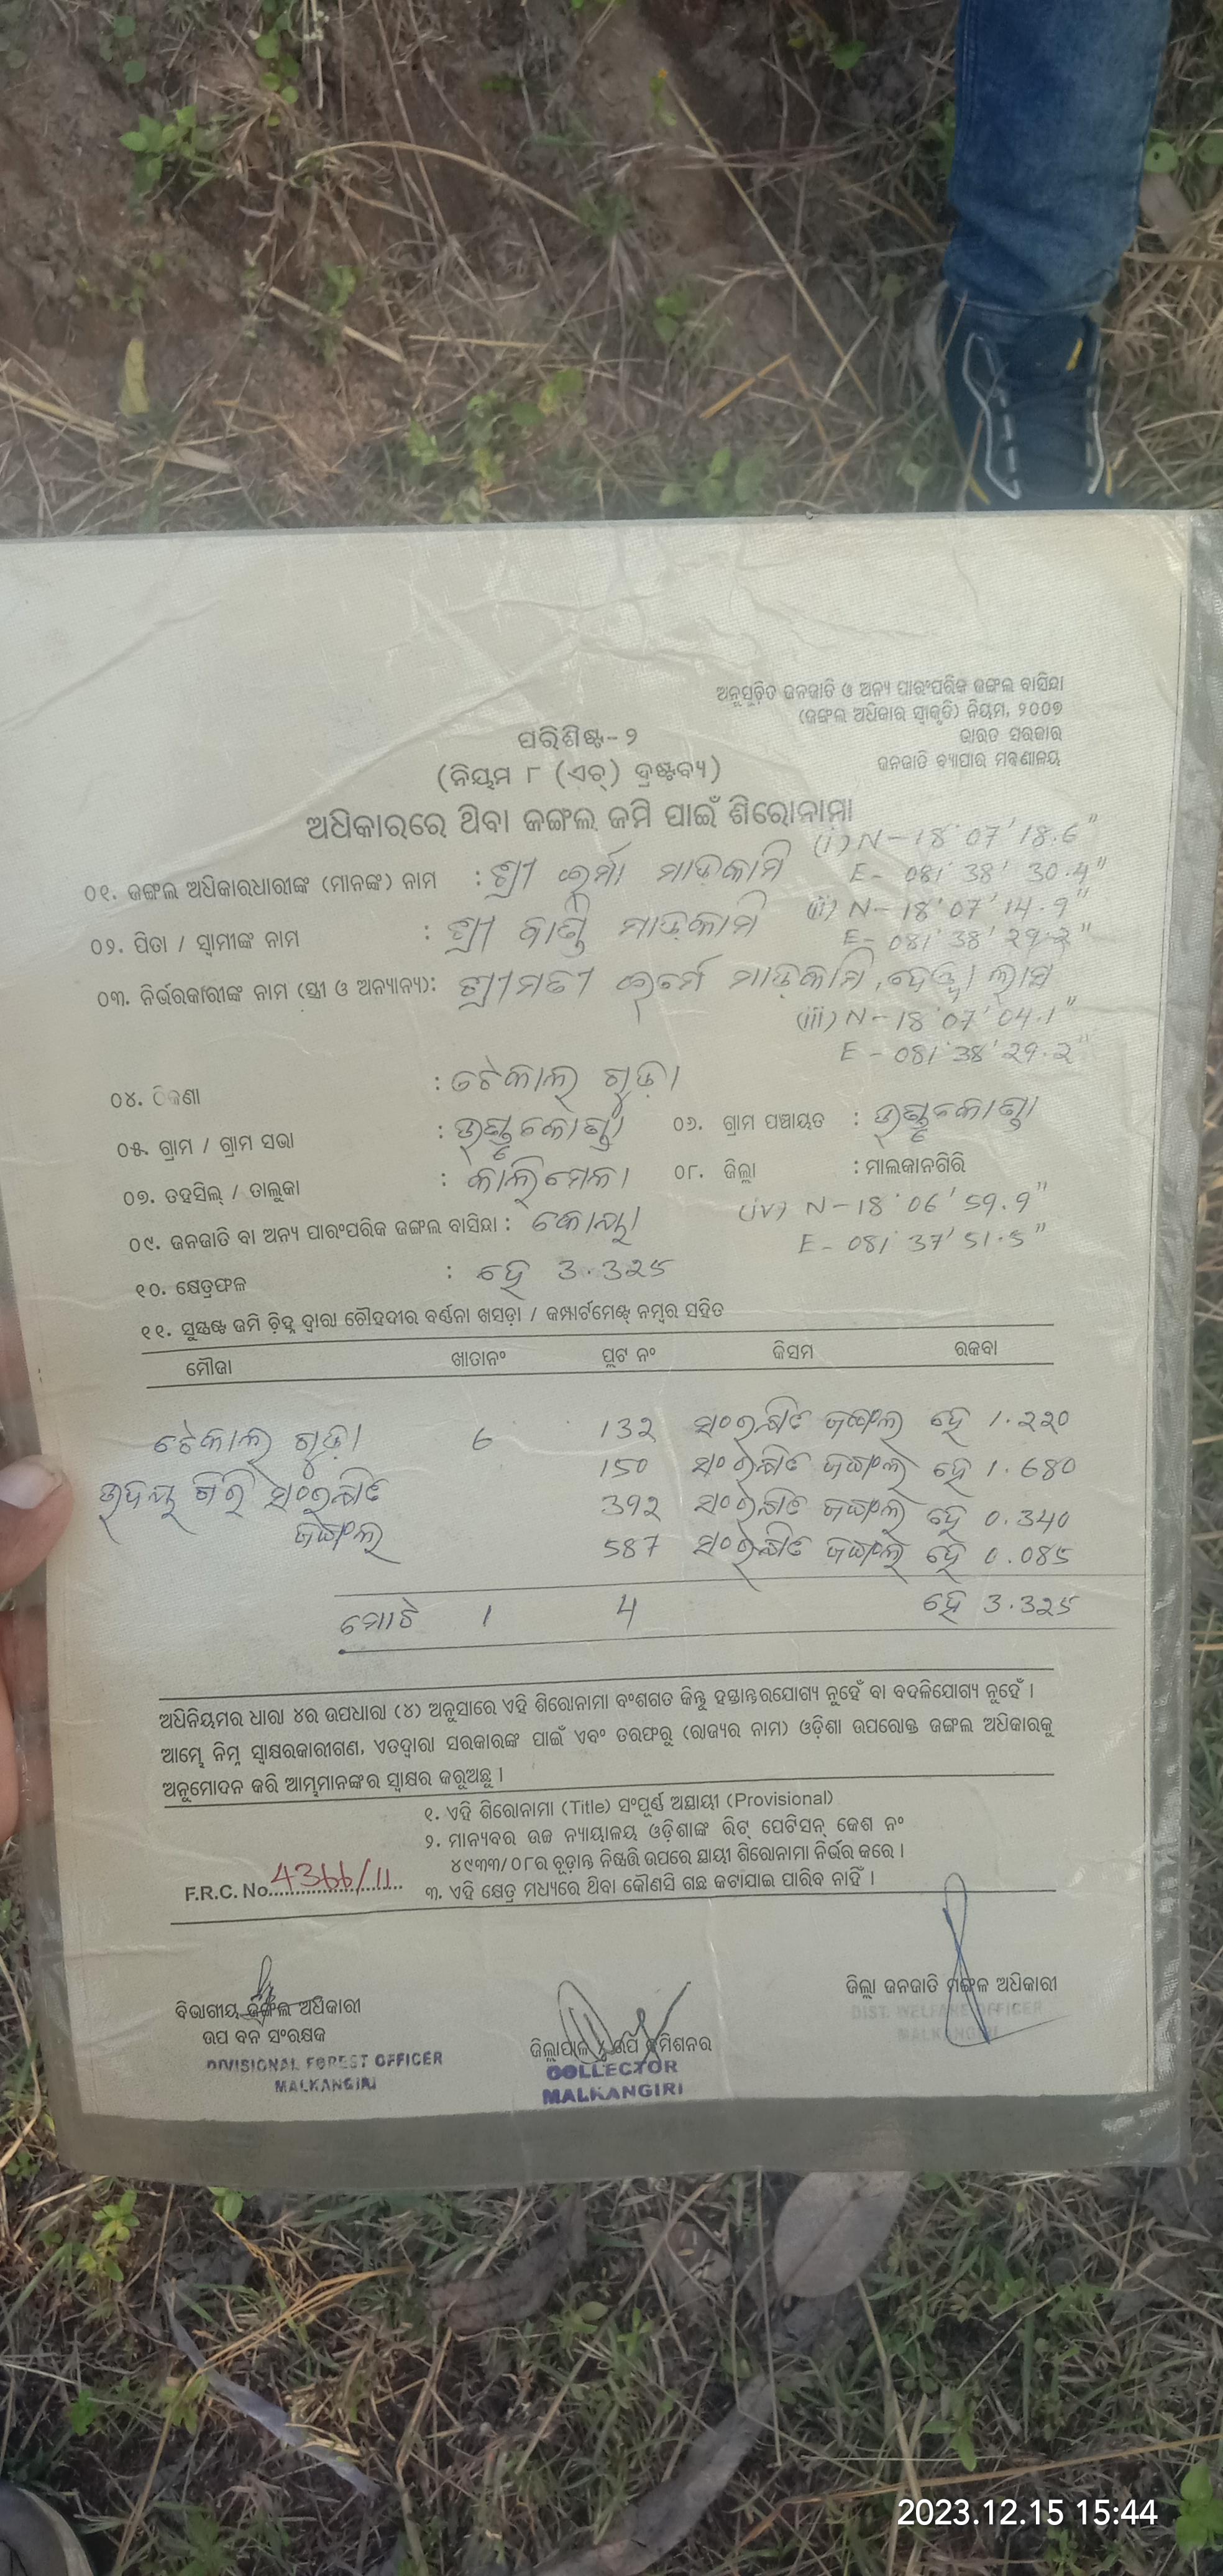 ଅନୁସୂଚିତ ଜନଜାତି ଓ ଅନ୍ୟ ପାରଂପରିକ ଜଙ୍ଗଲ ବାସିନ୍ଦା
(ଜଙ୍ଗଲ ଅଧିକାର ସ୍ୱୀକୃତି) ନିୟମ, ୨୦୦୭
ଭାରତ ସରକାର
ଜନଜାତି ବ୍ୟାପାର ମନ୍ତ୍ରଣାଳୟ
ପରିଶିଷ୍ଟ-୨
(ନିୟମ ୮ (ଏଚ୍) ଦ୍ରଷ୍ଟବ୍ୟ)
ଅଧିକାରରେ ଥିବା ଜଙ୍ଗଲ ଜମି ପାଇଁ ଶିରୋନାମା
(i) N-18°07'18.6"
E-081°38'30.4"
୦୧. ଜଙ୍ଗଲ ଅଧିକାରଧାରୀଙ୍କ (ମାନଙ୍କ) ନାମ : ଶ୍ରୀ ମାଡ଼କାମି
(ii) N-18°07'14.9"
E-081°38'29.2"
୦୨. ପିତା / ସ୍ୱାମୀଙ୍କ ନାମ : ଶ୍ରୀ ମାଡ଼କାମି
୦୩. ନିର୍ଭରକାରୀଙ୍କ ନାମ (ସ୍ତ୍ରୀ ଓ ଅନ୍ୟାନ୍ୟ): ଶ୍ରୀମତୀ ମାଡ଼କାମି,
(iii) N-18°07'04.1"
E-081°38'29.2"
୦୪. ଠିକଣା : ଟେକାଲ ଗୁଡ଼ା
୦୫. ଗ୍ରାମ / ଗ୍ରାମ ସଭା : ୦୬. ଗ୍ରାମ ପଞ୍ଚାୟତ :
୦୭. ତହସିଲ୍ / ତାଲୁକା : କାଲିମେଳା ୦୮. ଜିଲ୍ଲା : ମାଲକାନଗିରି
(iv) N-18°06'59.9"
E-081°37'51.5"
୦୯. ଜନଜାତି ବା ଅନ୍ୟ ପାରଂପରିକ ଜଙ୍ଗଲ ବାସିନ୍ଦା : କୋୟା
୧୦. କ୍ଷେତ୍ରଫଳ : ହେ 3.325
୧୧. ସୁସ୍ପଷ୍ଟ ଜମି ଚିହ୍ନ ଦ୍ୱାରା ଚୌହଦୀର ବର୍ଣ୍ଣନା ଖସଡ଼ା / କମ୍ପାର୍ଟମେଣ୍ଟ୍ ନମ୍ବର ସହିତ
ମୌଜା ଖାତାନଂ ପ୍ଲଟ ନଂ କିସମ ରକବା
ଟେକାଲ ଗୁଡ଼ା 6 132 ସଂରକ୍ଷିତ ଜଙ୍ଗଲ ହେ 1.220
ଉଦୟ ଗିରି ସଂରକ୍ଷିତ 150 ସଂରକ୍ଷିତ ଜଙ୍ଗଲ ହେ 1.680
ଜଙ୍ଗଲ 392 ସଂରକ୍ଷିତ ଜଙ୍ଗଲ ହେ 0.340
587 ସଂରକ୍ଷିତ ଜଙ୍ଗଲ ହେ 0.085
ମୋଟ 1 4 ହେ 3.325
ଅଧିନିୟମର ଧାରା ୪ର ଉପଧାରା (୪) ଅନୁସାରେ ଏହି ଶିରୋନାମା ବଂଶଗତ କିନ୍ତୁ ହସ୍ତାନ୍ତରଯୋଗ୍ୟ ନୁହେଁ ବା ବଦଳିଯୋଗ୍ୟ ନୁହେଁ ।
ଆମ୍ଭେ ନିମ୍ନ ସ୍ୱାକ୍ଷରକାରୀଗଣ, ଏତଦ୍ୱାରା ସରକାରଙ୍କ ପାଇଁ ଏବଂ ତରଫରୁ (ରାଜ୍ୟର ନାମ) ଓଡ଼ିଶା ଉପରୋକ୍ତ ଜଙ୍ଗଲ ଅଧିକାରକୁ
ଅନୁମୋଦନ କରି ଆମ୍ଭମାନଙ୍କର ସ୍ୱାକ୍ଷର କରୁଅଛୁ ।
୧. ଏହି ଶିରୋନାମା (Title) ସଂପୂର୍ଣ୍ଣ ଅସ୍ଥାୟୀ (Provisional)
୨. ମାନ୍ୟବର ଉଚ୍ଚ ନ୍ୟାୟାଳୟ ଓଡ଼ିଶାଙ୍କ ରିଟ୍ ପେଟିସନ୍ କେଶ ନଂ
୪୯୩୩/୦୮ର ଚୂଡ଼ାନ୍ତ ନିଷ୍ପତ୍ତି ଉପରେ ସ୍ଥାୟୀ ଶିରୋନାମା ନିର୍ଭର କରେ ।
F.R.C. No. 4366/11 ୩. ଏହି କ୍ଷେତ୍ର ମଧ୍ୟରେ ଥିବା କୌଣସି ଗଛ କଟାଯାଇ ପାରିବ ନାହିଁ ।
ବିଭାଗୀୟ ଜଙ୍ଗଲ ଅଧିକାରୀ
ଉପ ବନ ସଂରକ୍ଷକ
DIVISIONAL FOREST OFFICER
MALKANGIRI
ଜିଲ୍ଲାପାଳ / ଉପ କମିଶନର
COLLECTOR
MALKANGIRI
ଜିଲ୍ଲା ଜନଜାତି ମଙ୍ଗଳ ଅଧିକାରୀ
DIST. WELFARE OFFICER
MALKANGIRI
2023.12.15 15:44